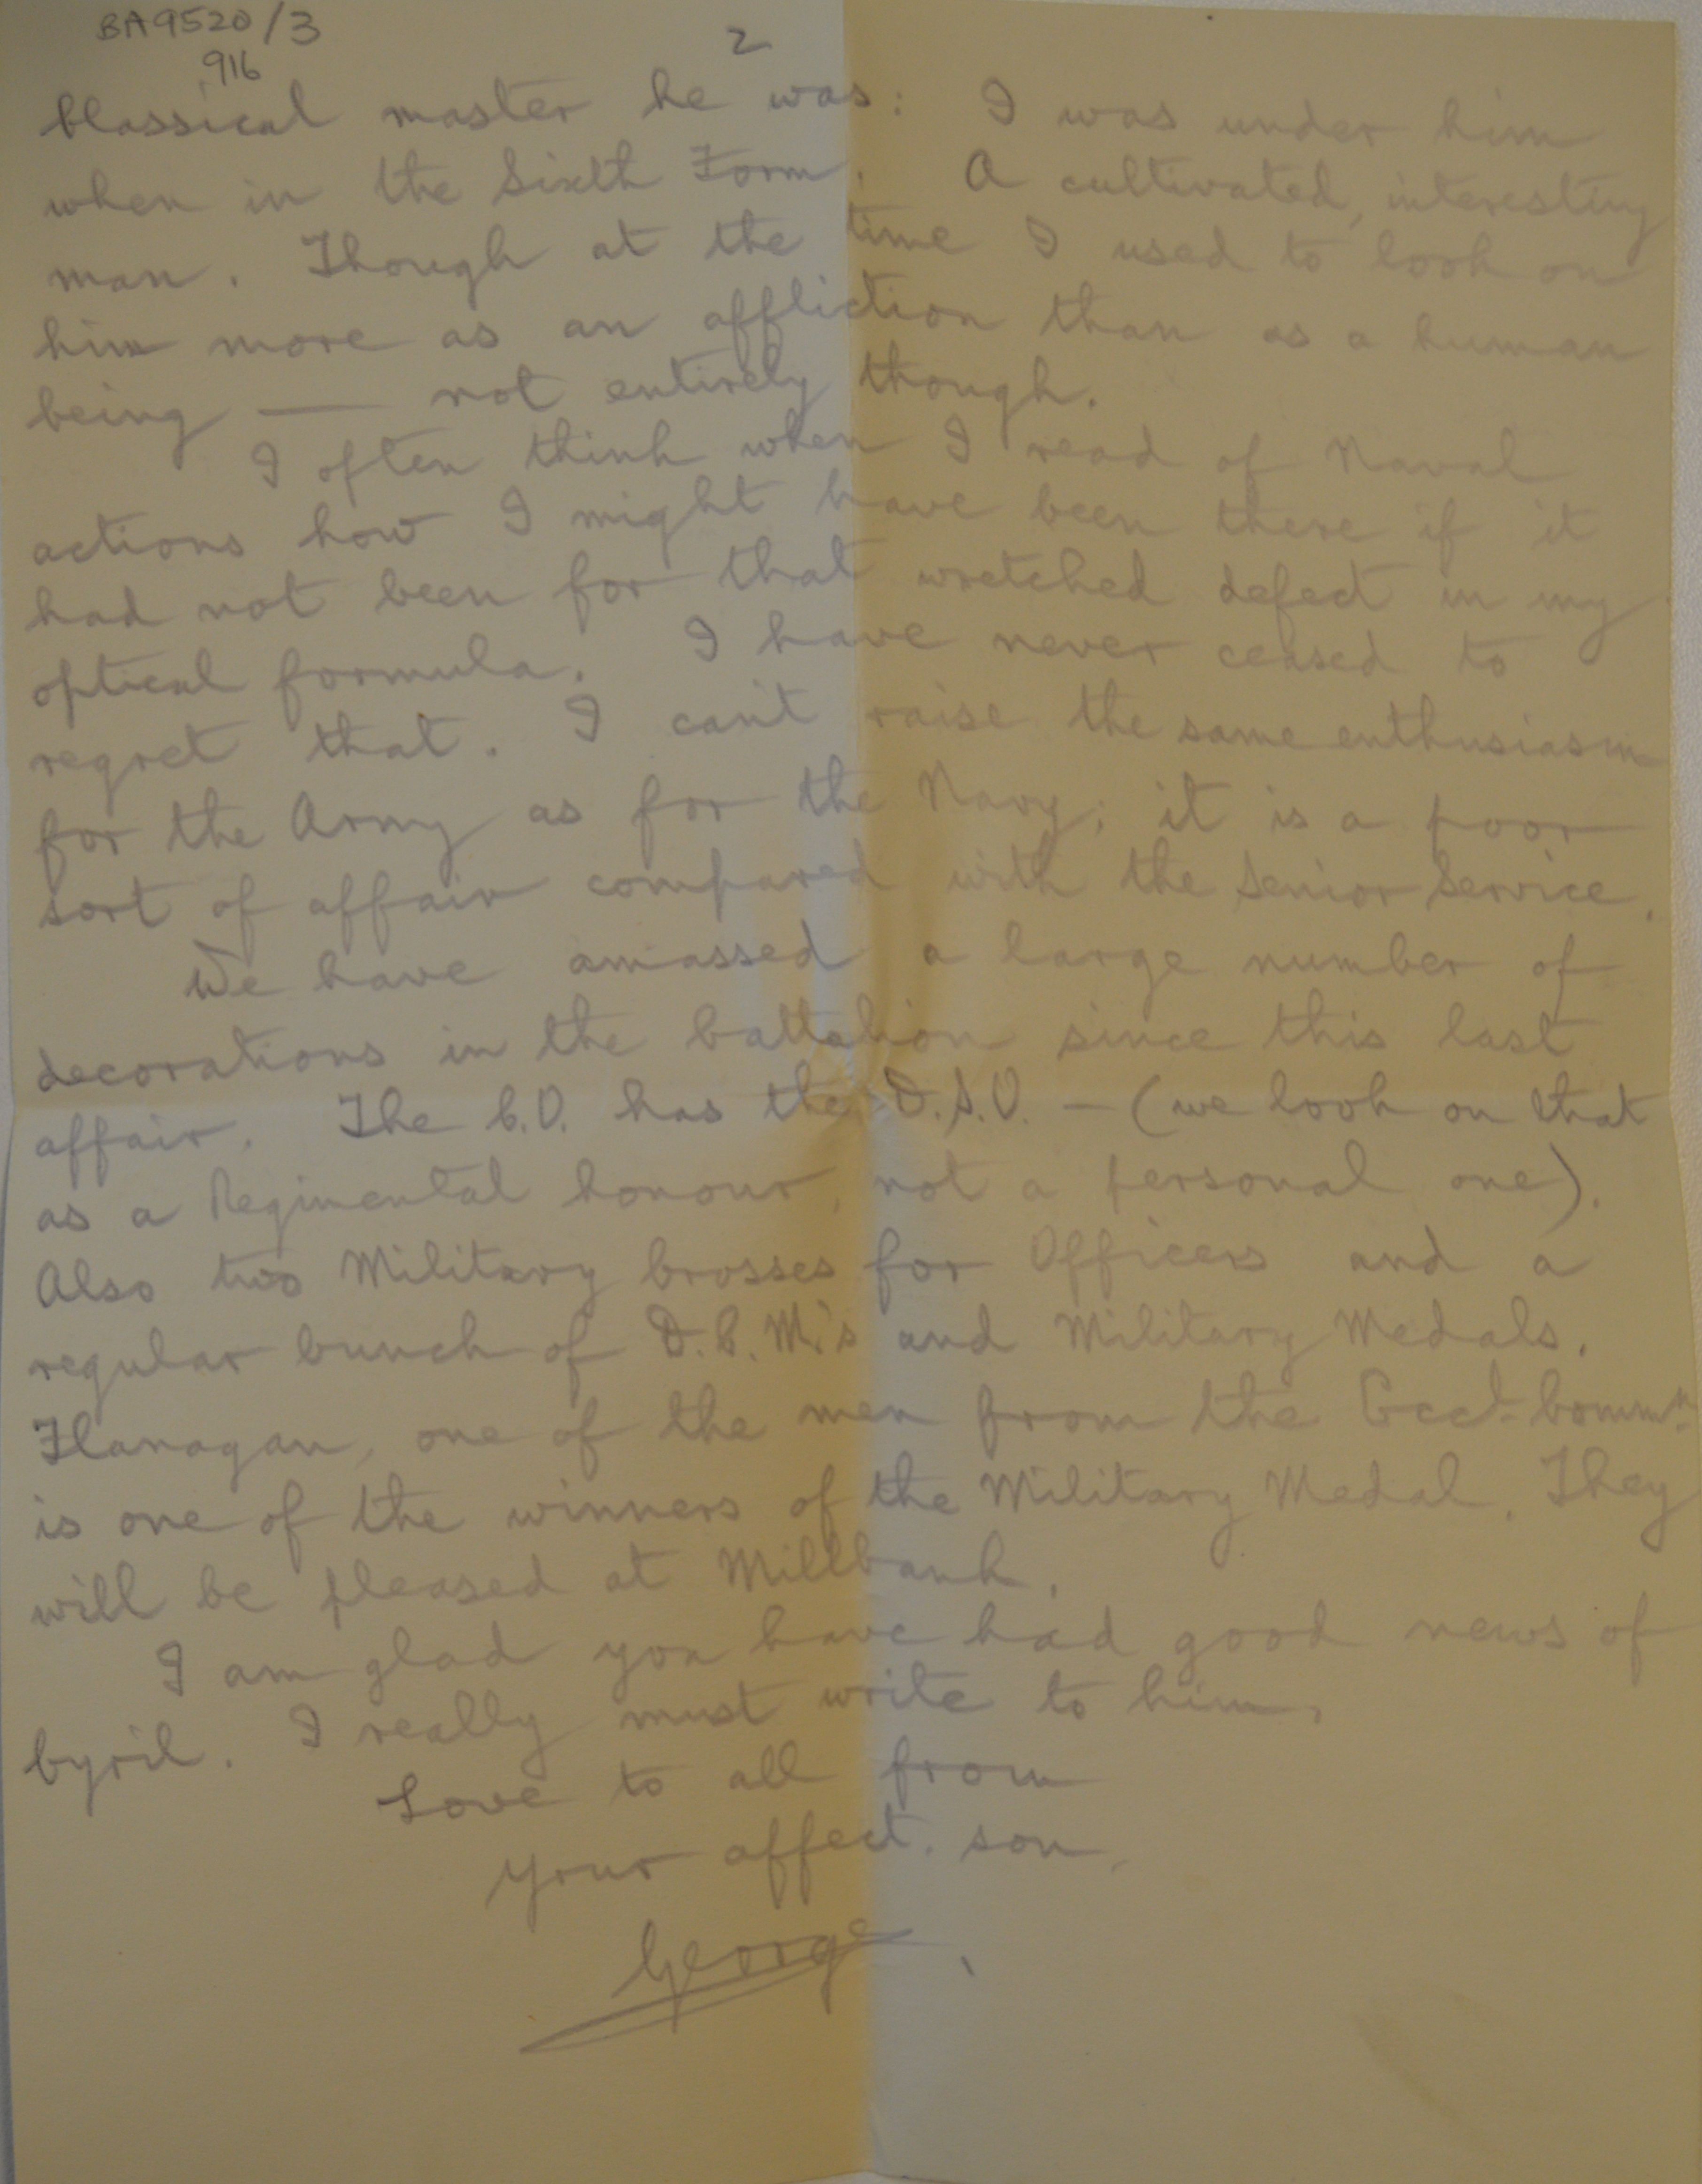 BA9520/3
916
2
Classical master he was: I was under him
when in the Sixth Form. A cultivated, interesting
man. Though at the time I used to look on
him more as an affliction than as a human
being — not entirely though.
I often think when I read of Naval
actions how I might have been there if it
had not been for that wretched defect in my
optical formula. I have never ceased to
regret that. I can't raise the same enthusiasm
for the Army as for the Navy; it is a poor
sort of affair compared with the Senior Service.
We have amassed a large number of
decorations in the battalion since this last
affair. The C.O. has the D.S.O. — (we look on that
as a Regimental honour, not a personal one).
Also two Military Crosses for Officers and a
regular bunch of D.C.M.'s and Military Medals.
Flanagan, one of the men from the Eccl. Commn.
is one of the winners of the Military Medal. They
will be pleased at Millbank.
I am glad you have had good news of
Cyril. I really must write to him.
Love to all from
your affect. son,
George